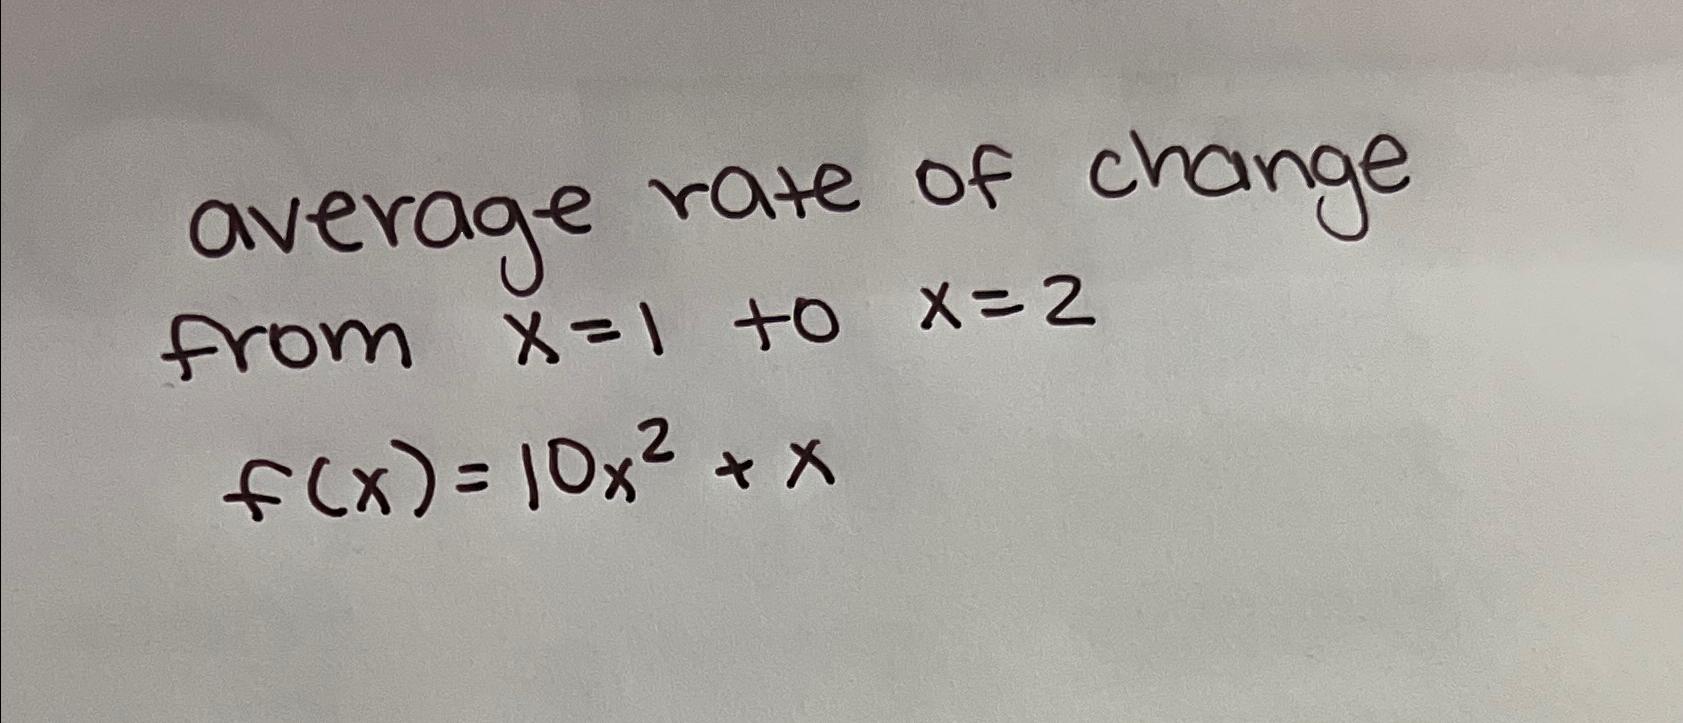 average rate of change
from x=1 to x=2
f(x)=10x² + x